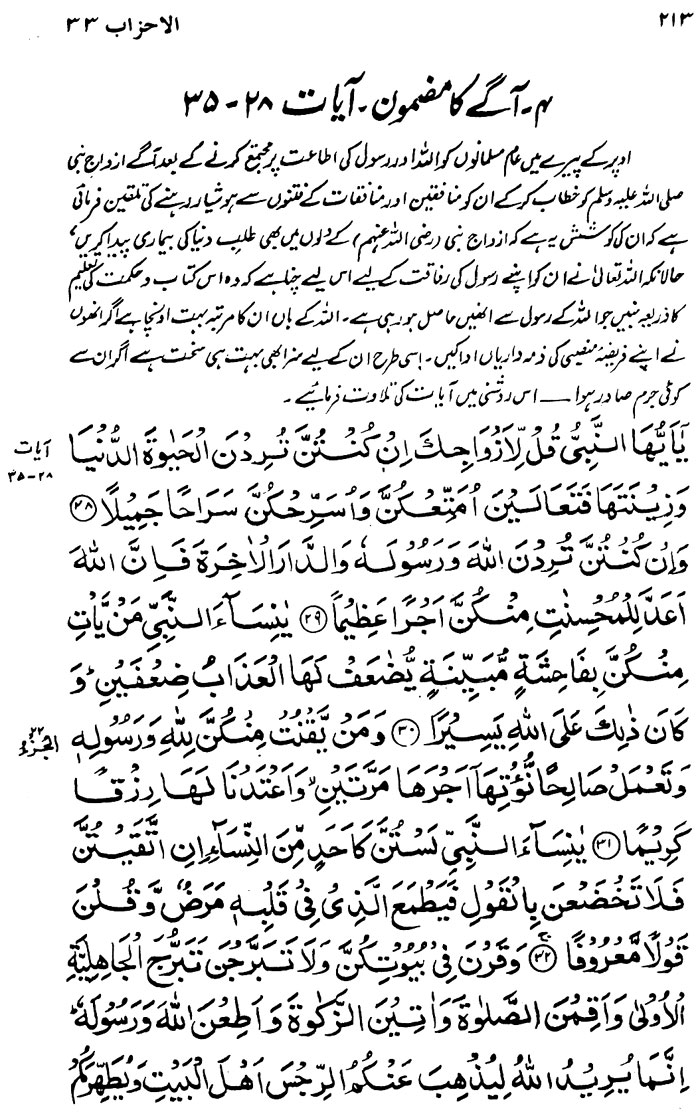 ۲۱۳
الاحزاب ۳۳
۴۔ آگے کا مضمون۔ آیات ۲۸-۳۵
اوپر کے پیرے میں عام مسلمانوں کو اللہ اور رسول کی اطاعت پر مجتمع کرنے کے بعد آگے ازواج نبی
صلی اللہ علیہ وسلم کو خطاب کر کے ان کو منافقین اور منافقات کے فتنوں سے ہوشیار رہنے کی تلقین فرمائی
ہے کہ ان کی کوشش یہ ہے کہ ازواج نبی (رضی اللہ عنہم) کے دلوں میں بھی طلب دنیا کی بیماری پیدا کریں،
حالانکہ اللہ تعالیٰ نے ان کو اپنے رسول کی رفاقت کے لیے اس لیے چنا ہے کہ وہ اس کتاب و حکمت کی تعلیم
کا ذریعہ بنیں جو اللہ کے رسول سے انھیں حاصل ہو رہی ہے۔ اللہ کے ہاں ان کا مرتبہ بہت اونچا ہے اگر انھوں
نے اپنے فریضۂ منصبی کی ذمہ داریاں ادا کیں۔ اسی طرح ان کے لیے سزا بھی بہت ہی سخت ہے اگر ان سے
کوئی جرم صادر ہوا — اس روشنی میں آیات کی تلاوت فرمائیے۔
آیات
۲۸-۳۵
يٰٓاَيُّهَا النَّبِيُّ قُلْ لِّاَزْوَاجِكَ اِنْ كُنْتُنَّ تُرِدْنَ الْحَيٰوةَ الدُّنْيَا
وَزِيْنَتَهَا فَتَعَالَيْنَ اُمَتِّعْكُنَّ وَاُسَرِّحْكُنَّ سَرَاحًا جَمِيْلًا ۝۲۸
وَاِنْ كُنْتُنَّ تُرِدْنَ اللّٰهَ وَرَسُوْلَهٗ وَالدَّارَ الْاٰخِرَةَ فَاِنَّ اللّٰهَ
اَعَدَّ لِلْمُحْسِنٰتِ مِنْكُنَّ اَجْرًا عَظِيْمًا ۝۲۹ يٰنِسَآءَ النَّبِيِّ مَنْ يَّاْتِ
مِنْكُنَّ بِفَاحِشَةٍ مُّبَيِّنَةٍ يُّضٰعَفْ لَهَا الْعَذَابُ ضِعْفَيْنِ ۭ وَ
كَانَ ذٰلِكَ عَلَى اللّٰهِ يَسِيْرًا ۝۳۰ وَمَنْ يَّقْنُتْ مِنْكُنَّ لِلّٰهِ وَرَسُوْلِهٖ
الجزء ۲۲
وَتَعْمَلْ صَالِحًا نُّؤْتِهَآ اَجْرَهَا مَرَّتَيْنِ ۙ وَاَعْتَدْنَا لَهَا رِزْقًا
كَرِيْمًا ۝۳۱ يٰنِسَآءَ النَّبِيِّ لَسْتُنَّ كَاَحَدٍ مِّنَ النِّسَآءِ اِنِ اتَّقَيْتُنَّ
فَلَا تَخْضَعْنَ بِالْقَوْلِ فَيَطْمَعَ الَّذِيْ فِيْ قَلْبِهٖ مَرَضٌ وَّقُلْنَ
قَوْلًا مَّعْرُوْفًا ۝۳۲ وَقَرْنَ فِيْ بُيُوْتِكُنَّ وَلَا تَبَرَّجْنَ تَبَرُّجَ الْجَاهِلِيَّةِ
الْاُوْلٰى وَاَقِمْنَ الصَّلٰوةَ وَاٰتِيْنَ الزَّكٰوةَ وَاَطِعْنَ اللّٰهَ وَرَسُوْلَهٗ ۭ
اِنَّمَا يُرِيْدُ اللّٰهُ لِيُذْهِبَ عَنْكُمُ الرِّجْسَ اَهْلَ الْبَيْتِ وَيُطَهِّرَكُمْ